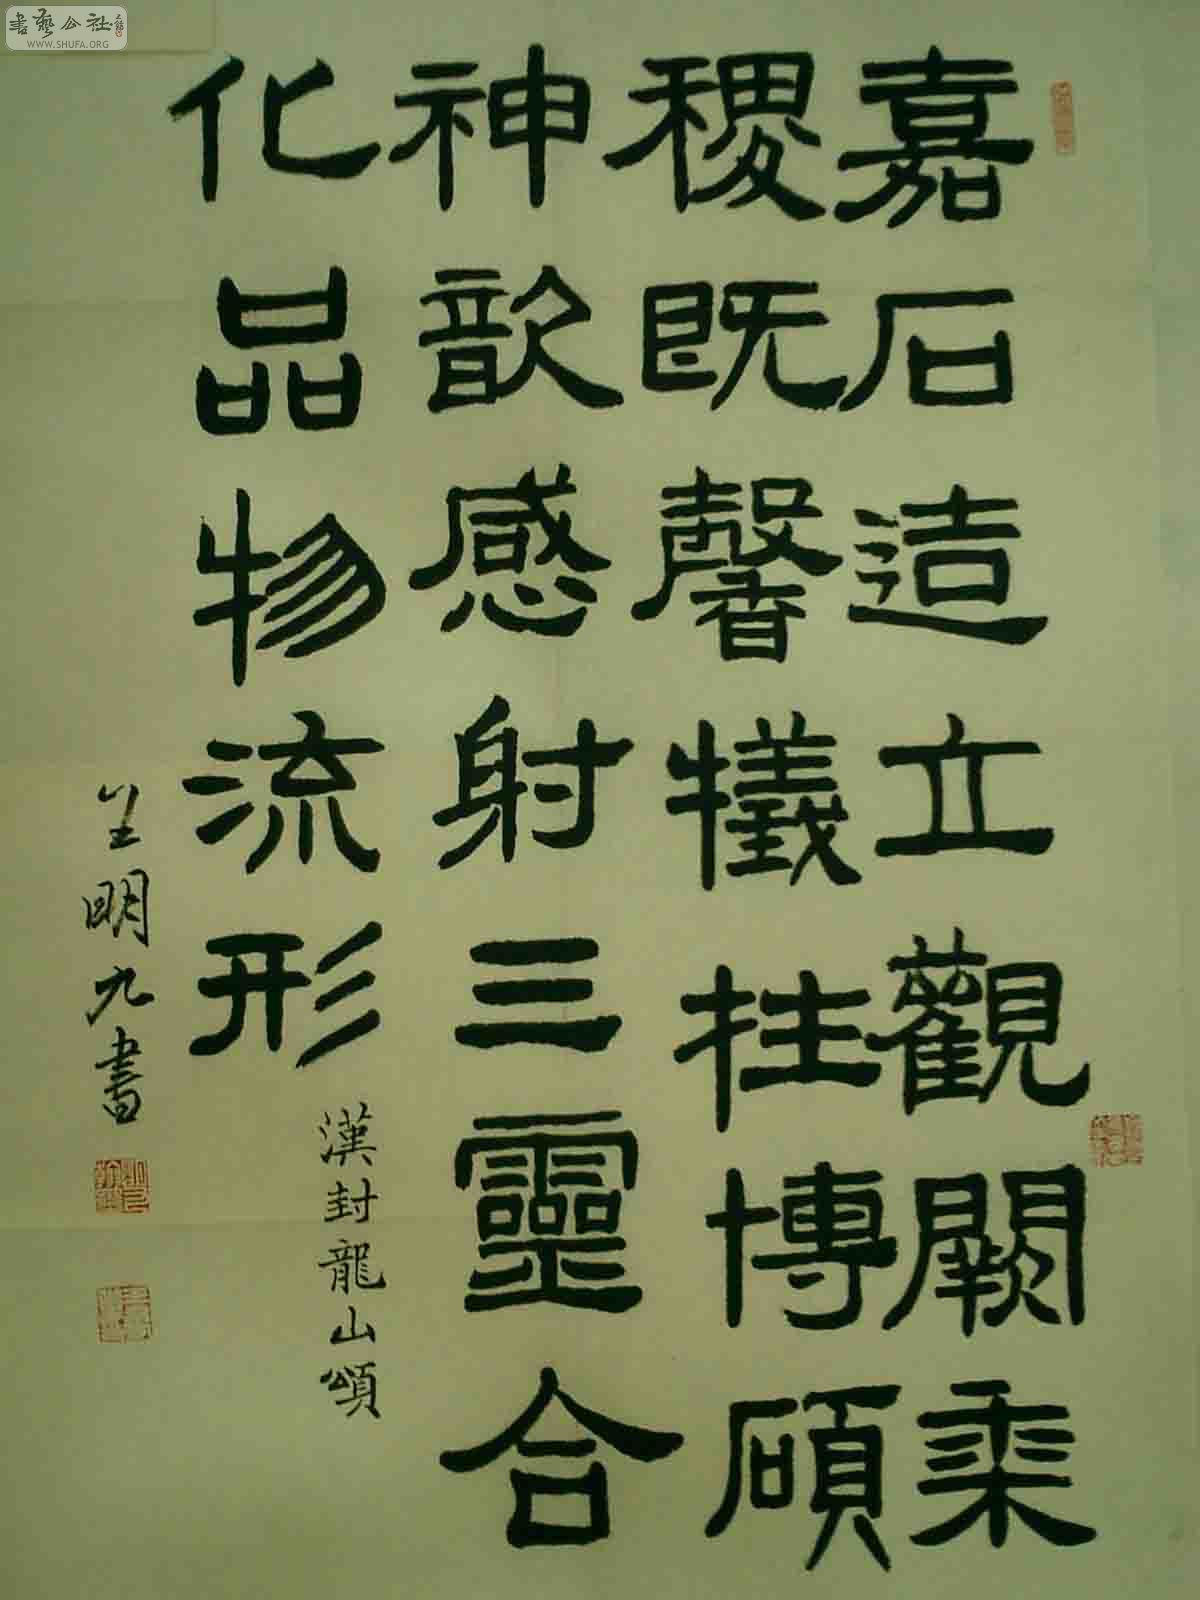 書藝公社
WWW.SHUFA.ORG
嘉石造立觀闕黍
稷既馨犧牲博碩
神歆感射三靈合
化品物流形
漢封龍山頌
王明九書